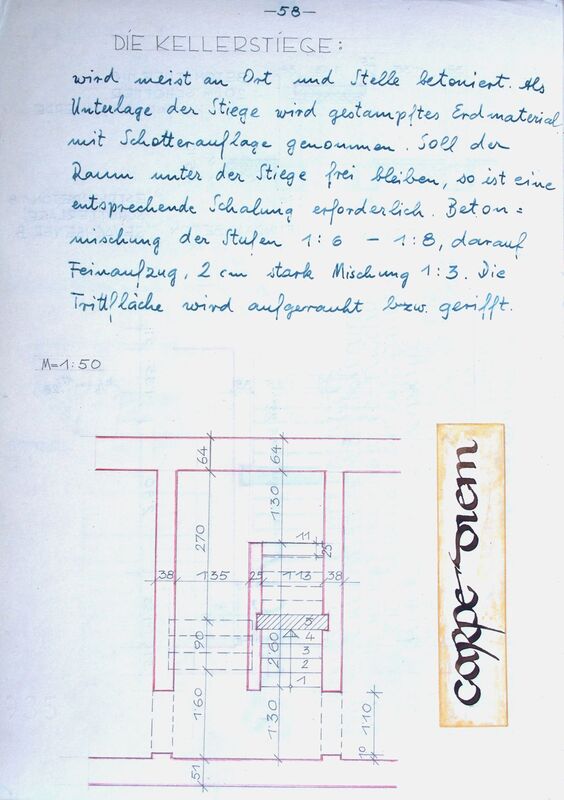 —58—
DIE KELLERSTIEGE:
wird meist an Ort und Stelle betoniert. Als
Unterlage der Stiege wird gestampftes Erdmaterial
mit Schotterauflage genommen. Soll der
Raum unter der Stiege frei bleiben, so ist eine
entsprechende Schalung erforderlich. Beton=
mischung der Stufen 1:6 – 1:8, darauf
Feinaufzug, 2 cm stark Mischung 1:3. Die
Trittfläche wird aufgerauht bzw. gerifft.
M=1:50
64
64
1'30
270
11
25
38
1'35
25
1'13
38
90
2'60
5
4
3
2
1
1'60
1'30
1'10
10
51
carpe diem